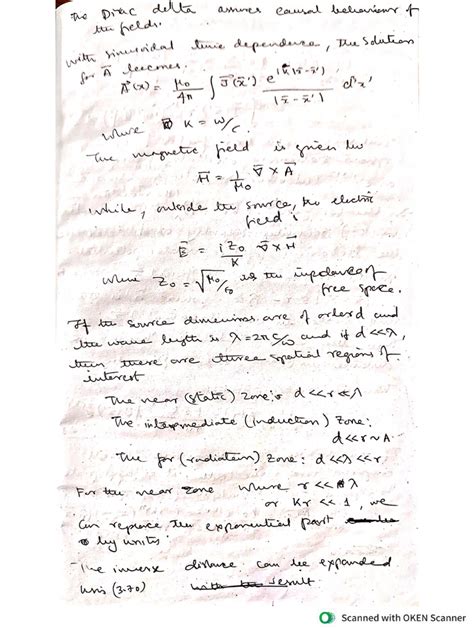 The Dirac delta assures causal behaviour of
the fields.
With sinusoidal time dependence, the solution
for A⃗ becomes.
A⃗(x) = μ₀/4π ∫ J⃗(x̄') e^{ik|x̄-x̄'|}/|x̄-x̄'| d³x'
where k = ω/c.
The magnetic field is given by
H̄ = 1/μ₀ ∇̄ × Ā
while, outside the source, the electric
field is
Ē = iZ₀/k ∇̄ × H̄
where Z₀ = √μ₀/ε₀ is the impedance of
free space.
If the source dimensions are of order d and
the wave length is λ = 2πc/ω and if d <<λ,
then there are three spatial regions of
interest
The near (static) zone: d <<r <<λ
The intermediate (induction) zone:
d<<r~λ.
The far (radiation) zone: d <<λ <<r.
For the near zone where r << λ
or Kr << 1, we
Can replace the exponential part
by unity
The inverse distance can be expanded
using (3.70) with the result